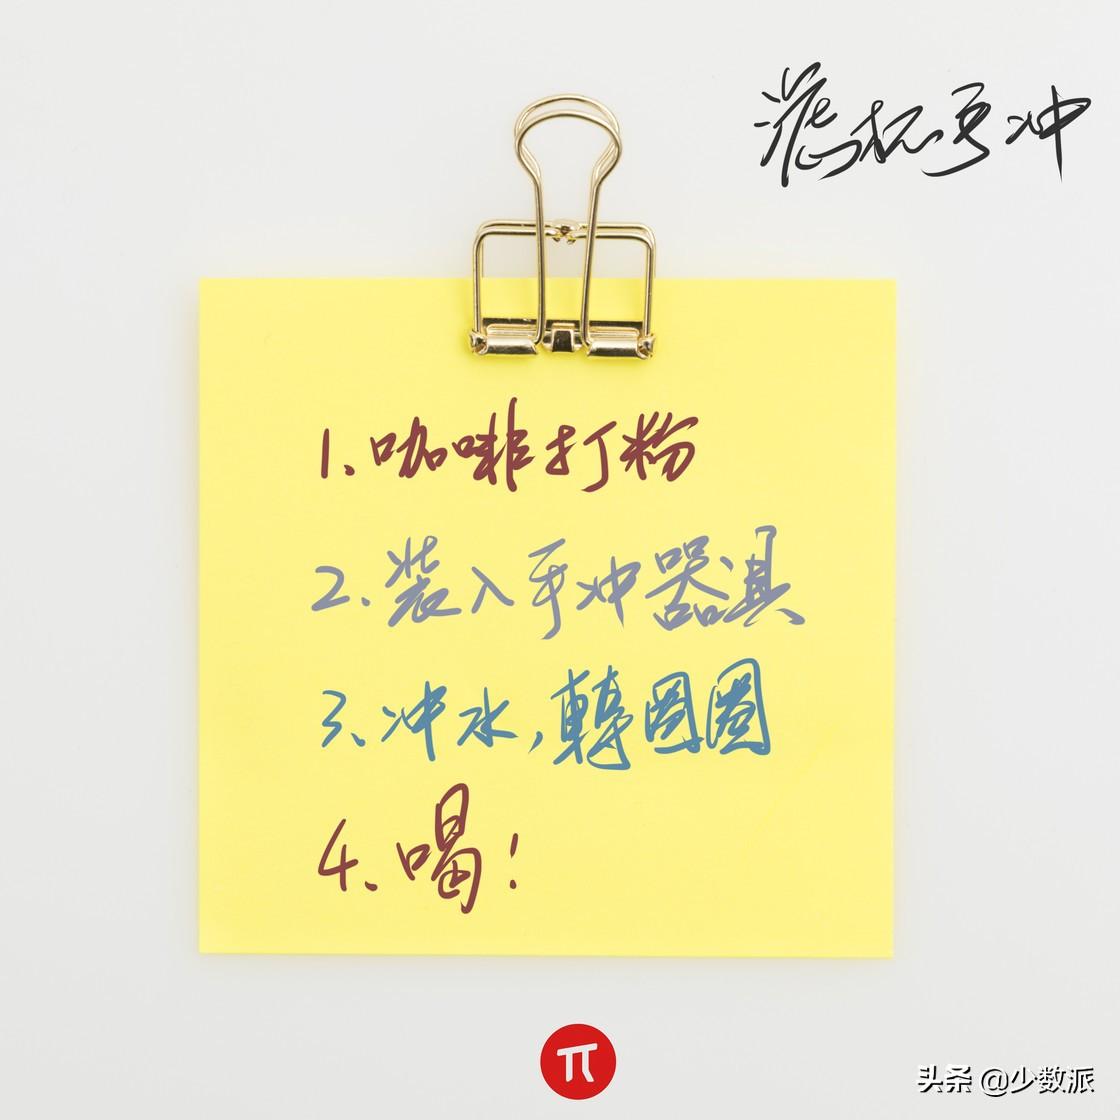 杯手冲
1、咖啡打粉
2.装入手冲器具
3、冲水,轉圈圈
4、喝!
π
头条 @少数派